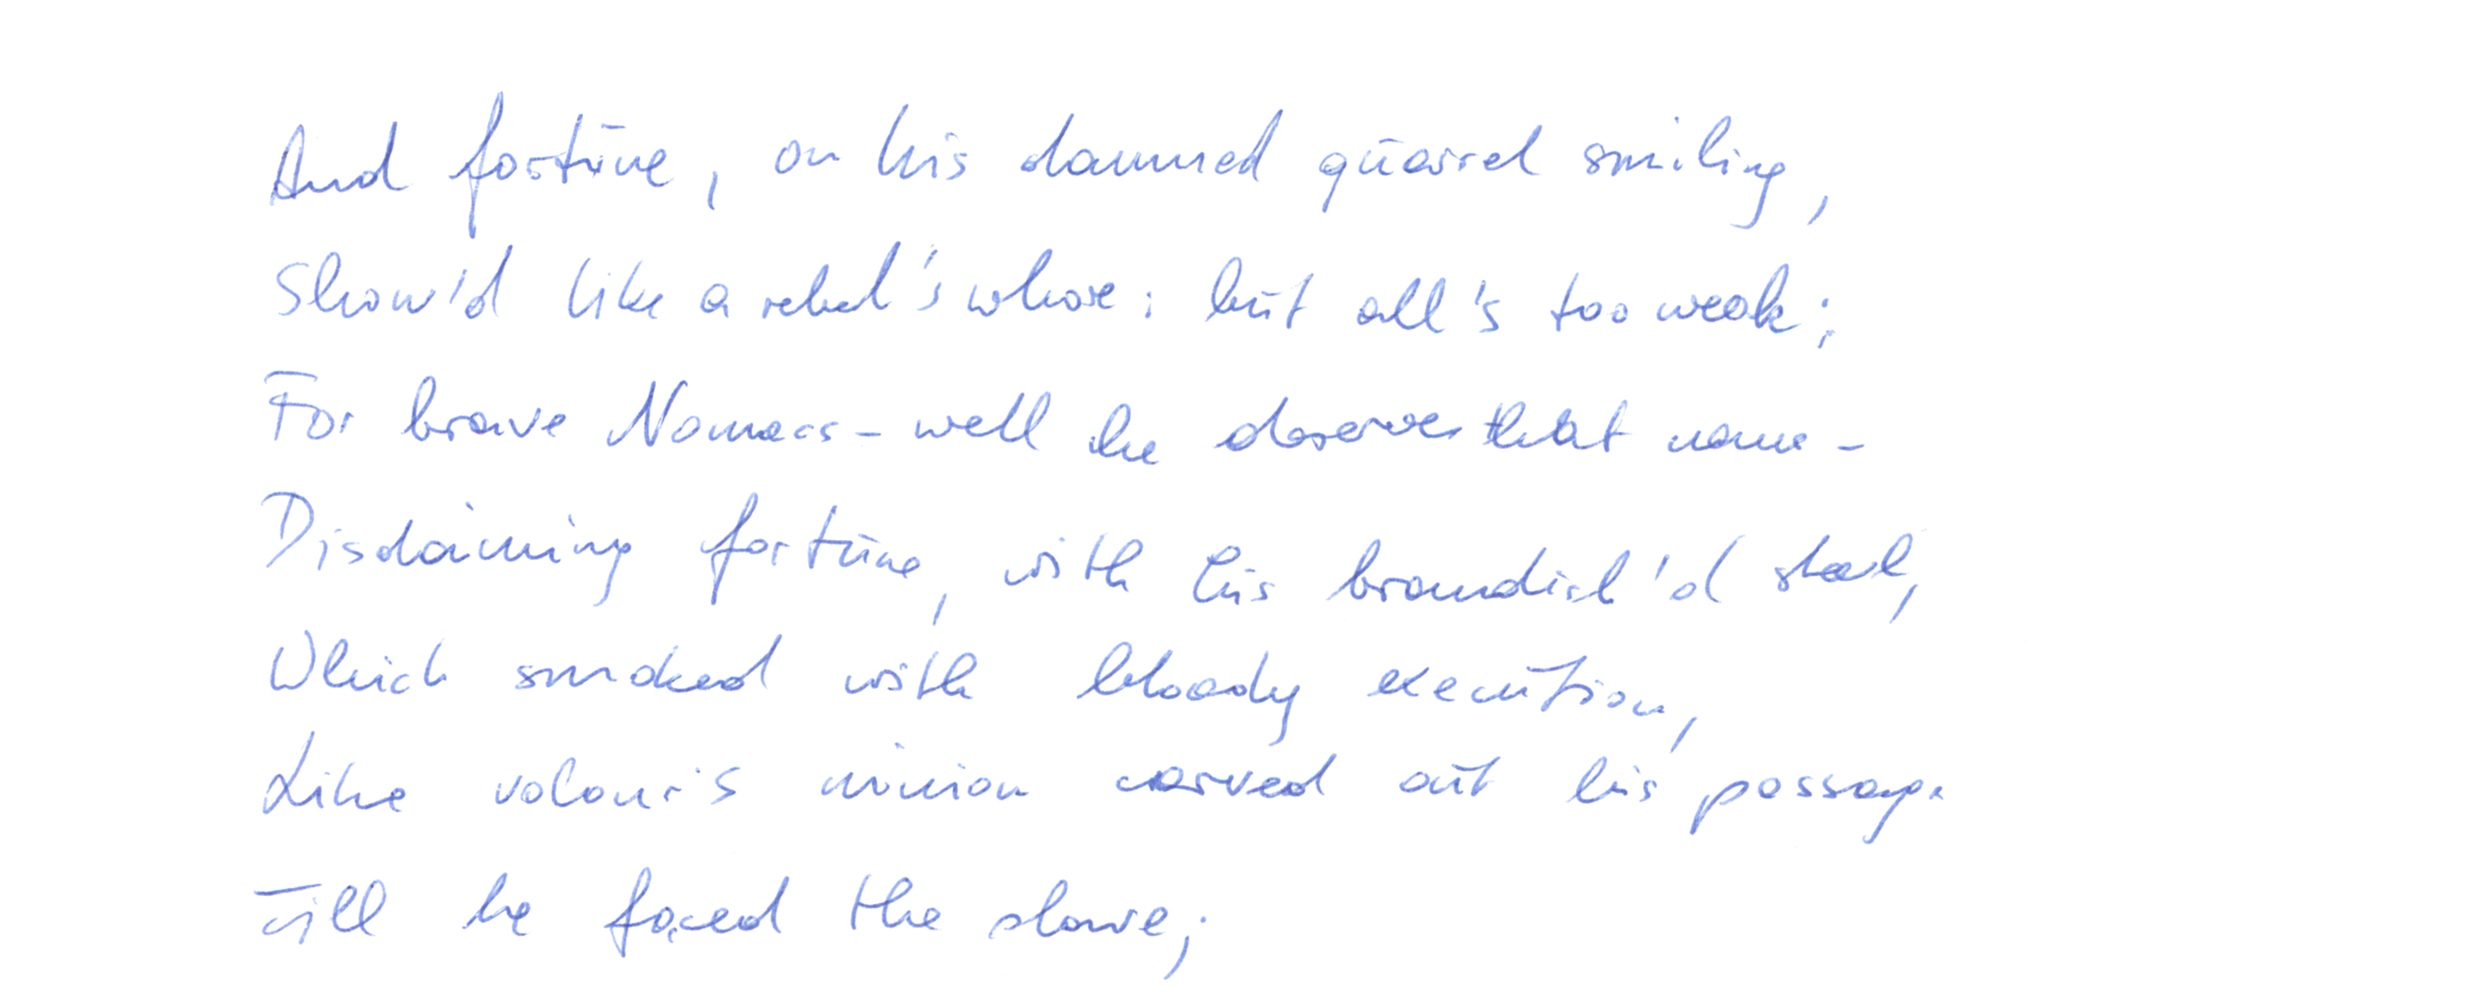 And fortune, on his damned quarrel smiling,
Show'd like a rebel's whore: but all's too weak;
For brave Nomacs - well he deserves that name -
Disdaining fortune, with his brandish'd steel,
Which smoked with bloody execution,
Like valour's minion carved out his passage
Till he faced the slave;